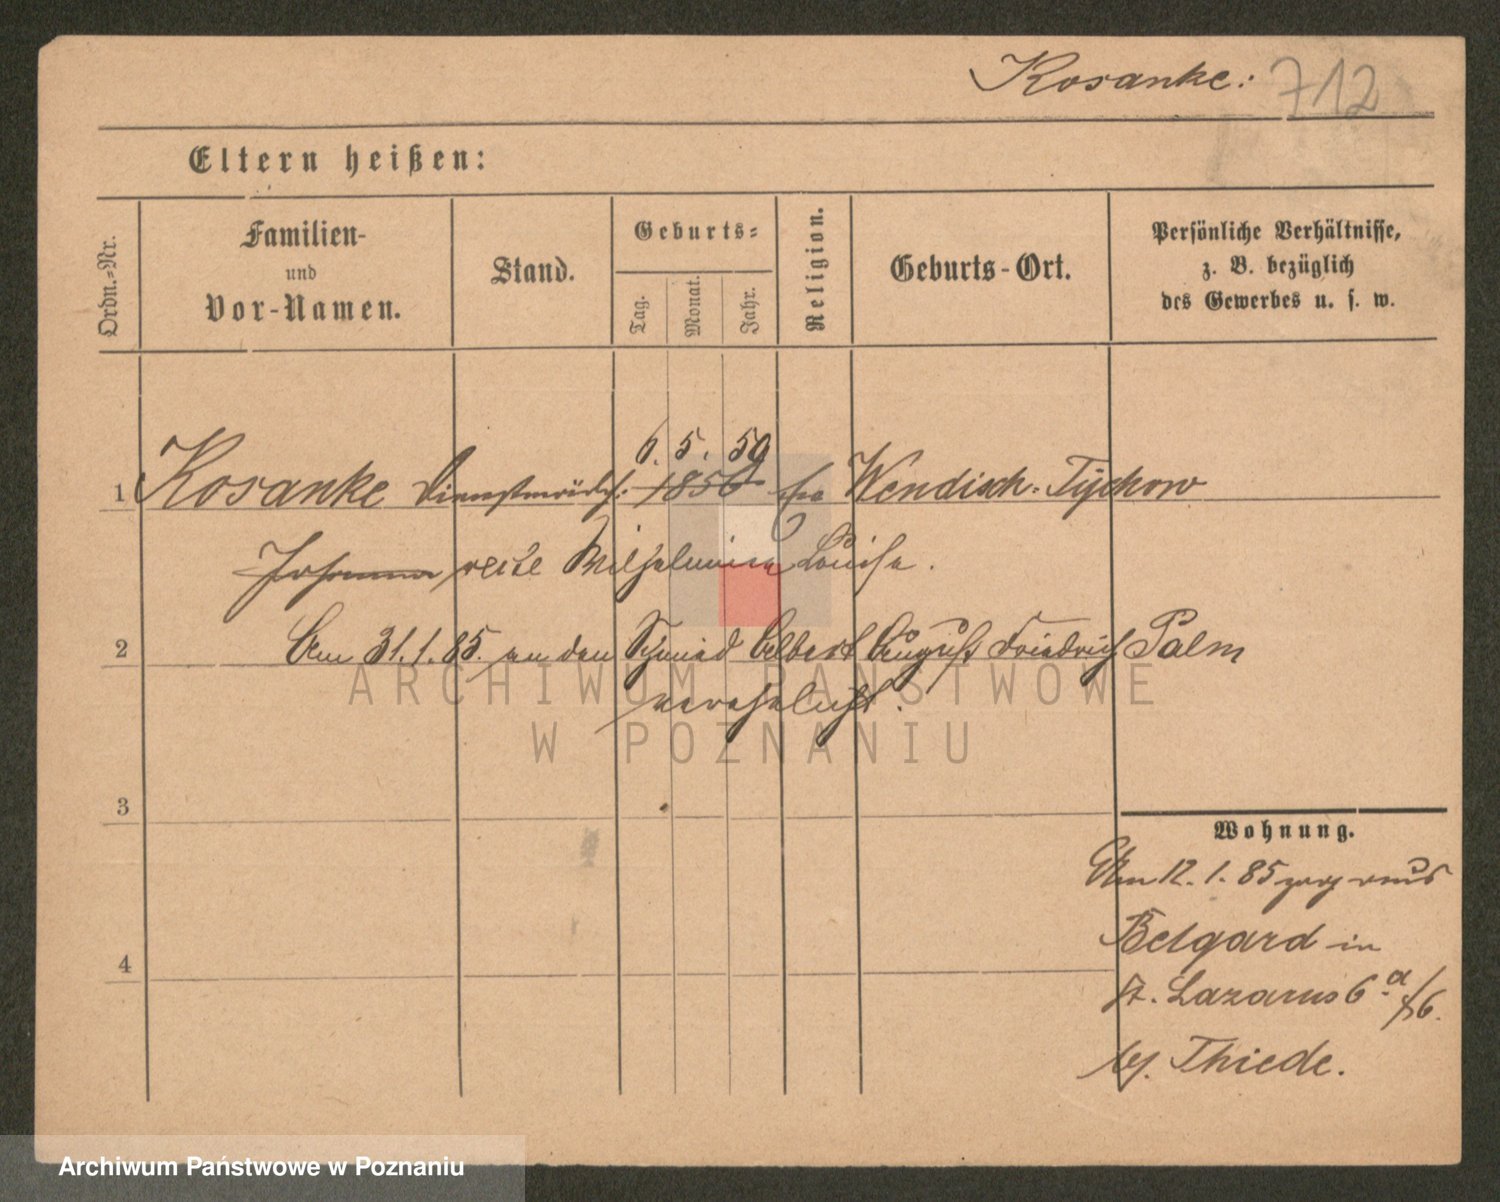 Kosanke: 712
Eltern heißen:
Ordn.-Nr.
Familien-
und
Vor-Namen.
Stand.
Geburts-
Tag.
Monat.
Jahr.
Religion.
Geburts-Ort.
Persönliche Verhältnisse,
z. B. bezüglich
des Gewerbes u. s. w.
6. 5. 59
1 Kosanke 1856 Wendisch-Tychow
Johanna recte Wilhelmine Louise.
2 Am 31.1.85. an den Schmied Albert August Friedrich Palm
verehelicht.
ARCHIWUM PAŃSTWOWE
W POZNANIU
3
Wohnung.
Am 12.1.85 zug. aus
Belgard in
4
St. Lazarus 6a
bei Thiede.
Archiwum Państwowe w Poznaniu